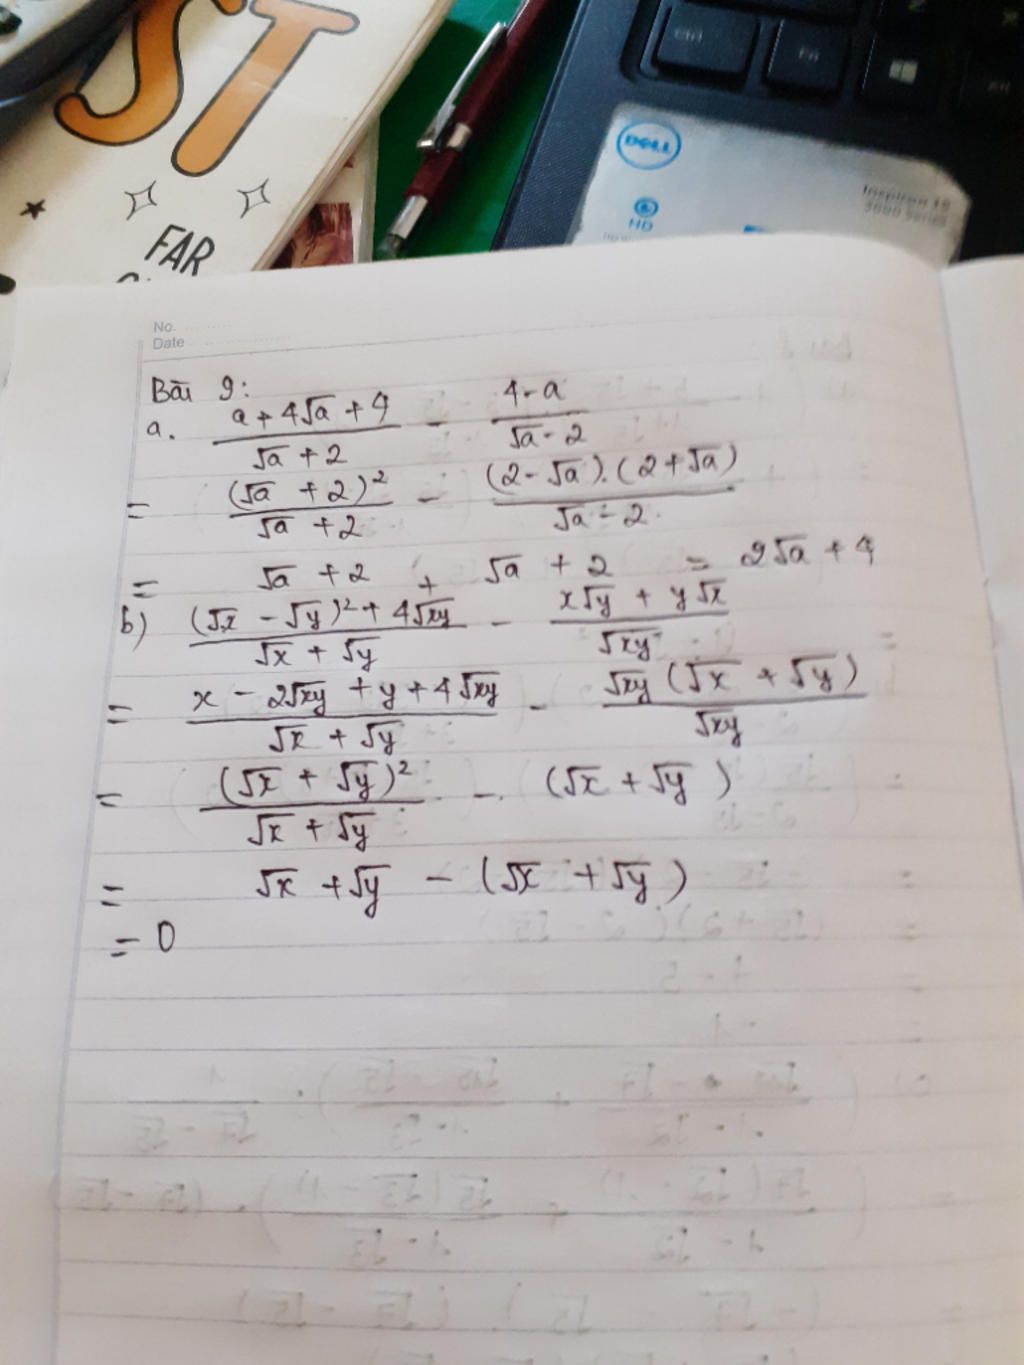 ST
FAR
Ctrl
Fn
DELL
HD
Inspiron 15
3000 Series
No.
Date
Bài 9:
a. (a + 4√a + 4)/(√a + 2) - (4 - a)/(√a - 2)
= (√a + 2)²/(√a + 2) - (2 - √a).(2 + √a)/(√a - 2)
= √a + 2 + √a + 2 = 2√a + 4
b) ((√x - √y)² + 4√xy)/(√x + √y) - (x√y + y√x)/√xy
= (x - 2√xy + y + 4√xy)/(√x + √y) - √xy(√x + √y)/√xy
= (√x + √y)²/(√x + √y) - (√x + √y)
= √x + √y - (√x + √y)
= 0